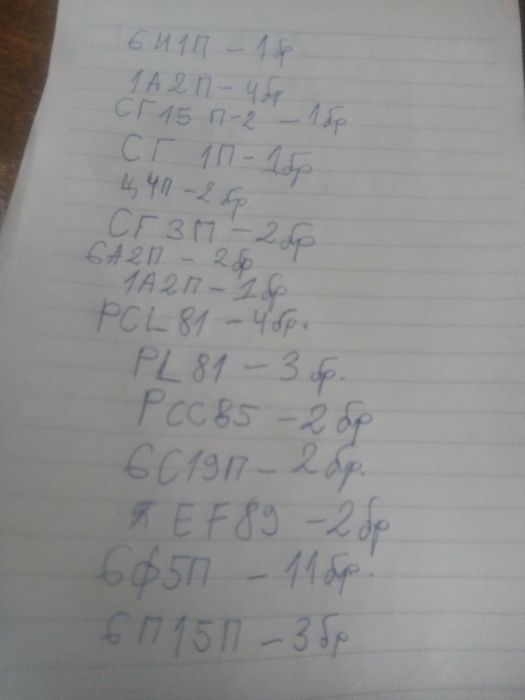 6И1П - 1бр
1А2П - 4бр
СГ15 П-2 - 1бр
СГ 1П - 1бр
Ц4П - 2бр.
СГ3П - 2бр
6А2П - 2бр
1А2П - 1бр
PCL81 - 4бр.
PL81 - 3бр.
PCC85 - 2бр
6С19П - 2бр.
EF89 - 2бр
6Ф5П - 11бр.
6П15П - 3бр